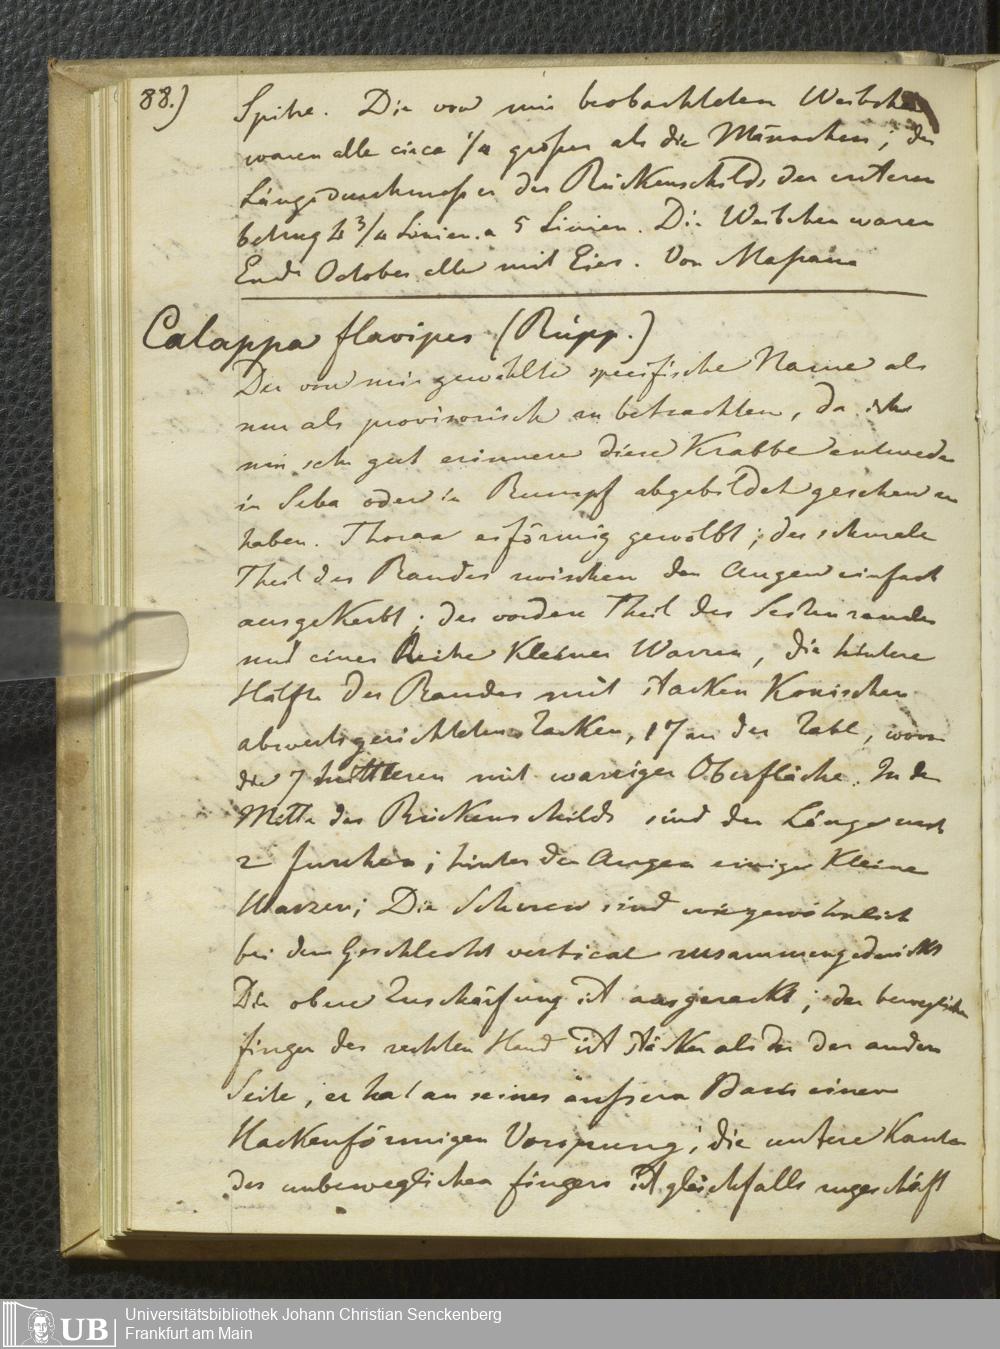 88.)
Spitze. Die von mir beobachteten Weibchen
waren alle circa 1/4 größer als die Männchen; der
Längsdurchmeßer des Rückenschilds der ersteren
betrug 4 3/4 Linien a 5 Linien. Die Weibchen waren
Ende October alle mit Eier. Von Maßaua
Calappa flavipes (Rüpp.)
Der von mir gewählte specifische Name als
nur als provisorisch zu betrachten, da ich
mir sehr gut erinnere diese Krabbe entweder
in Seba oder in Rumpf abgebildet gesehen zu
haben. Thorax eiförmig gewölbt; der schmale
Theil des Randes zwischen den Augen einfach
ausgekerbt; der vordere Theil des Seitenrandes
mit einer Reihe kleiner Warzen, die hintere
Hälfte des Randes mit starken Konischen
abwertsgerichteten Zacken, 17 an der Zahl, wovon
die 7 mittleren mit warziger Oberfläche. In der
Mitte des Rückenschilds sind der Länge nach
2 Furchen; hinter den Augen einige Kleine
Warzen; Die Scheren sind wie gewöhnlich
bei dem Geschlecht vertical zusammengedrückt
Die obere Zuschärfung ist ausgezackt; der bewegliche
finger der rechten Hand ist stärker als der der andern
Seite, er hat an seiner äußern Basis einen
Hackenförmigen Vorsprung; die untere Kante
des unbeweglichen fingers ist gleichfalls zugeschärft
Universitätsbibliothek Johann Christian Senckenberg
Frankfurt am Main
UB